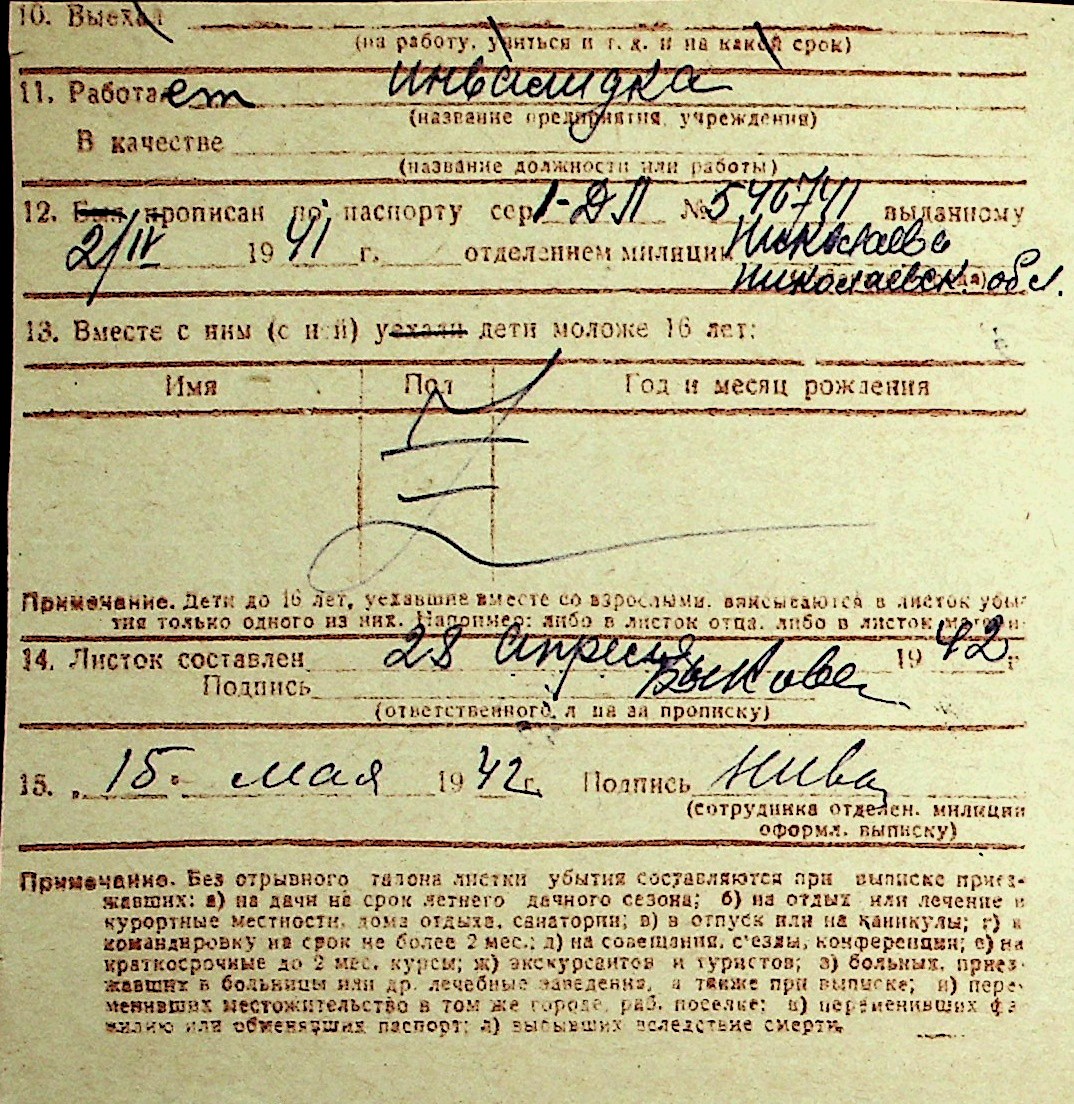 10. Выехал
(на работу, учиться и т. д. и на какой срок)
11. Работает инвалидка
(название предприятия, учреждения)
В качестве
(название должности или работы)
12. Был прописан по паспорту сер. 1-ДП № 546741 выданному
2/IV 1941 г. отделением милиции Николаева
Николаевск. обл.
13. Вместе с ним (с ней) уехали дети моложе 16 лет:
Имя Пол Год и месяц рождения
Примечание. Дети до 16 лет, уехавшие вместе со взрослыми, вписываются в листок убы-
тия только одного из них. Например: либо в листок отца, либо в листок матери
14. Листок составлен 28 Апреля 1942 г
Подпись
(ответственного л ца за прописку)
15. „ 15 " мая 1942 г. Подпись
(сотрудника отделен. милиции
оформл. выписку)
Примечание. Без отрывного талона листки убытия составляются при выписке приез-
жавших: а) на дачи на срок летнего дачного сезона; б) на отдых или лечение в
курортные местности, дома отдыха, санатории; в) в отпуск или на каникулы; г) в
командировку на срок не более 2 мес.; д) на совещания, с'езды, конференции; е) на
краткосрочные до 2 мес. курсы; ж) экскурсантов и туристов; з) больных, приез-
жавших в больницы или др. лечебные заведения, а также при выписке; и) пере-
менивших местожительство в том же городе, раб. поселке; к) переменивших фа-
милию или обменявших паспорт; л) выбывших вследствие смерти.